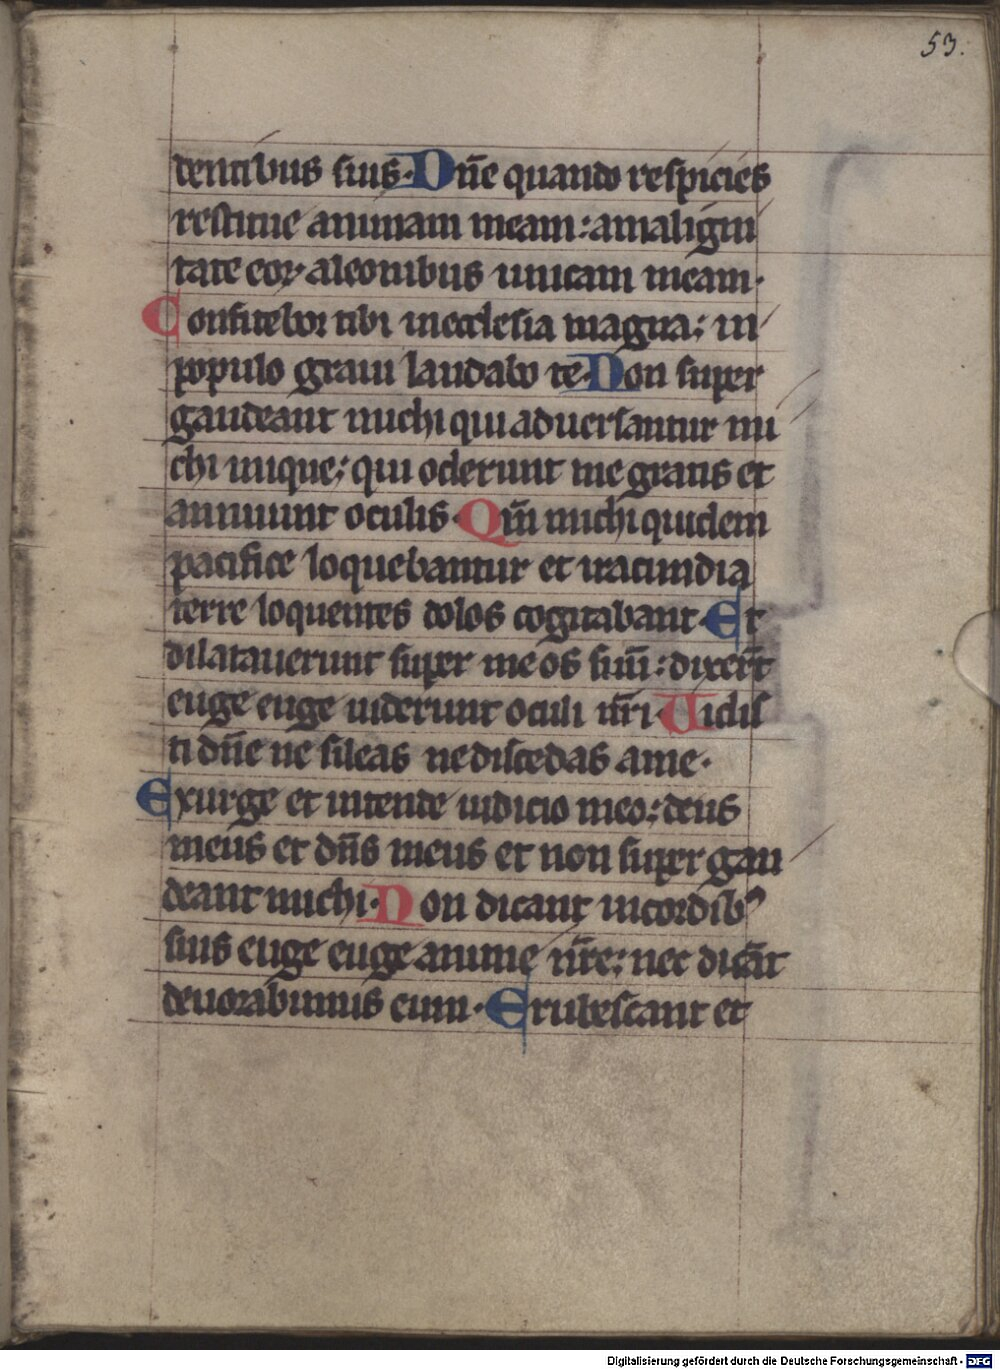 53.
dentibus suis. Dn̄e quando respicies
restitue animam meam: amaligni
tate eoꝝ aleonibus unicam meam.
Confitebor tibi inecclesia magna; in
populo graui laudabo te. Non super
gaudeant michi qui aduersantur mi
chi inique; qui oderunt me gratis et
annuunt oculis. Qm̄ michi quidem
pacifice loquebantur et iracundia
terre loquentes dolos cogitabant. Et
dilatauerunt super me os suū: dixer̄t
euge euge uiderunt oculi nr̄i. Uidis
ti dn̄e ne sileas ne discedas ame.
Exurge et intende iudicio meo; deus
meus et dn̄s meus et non super gau
deant michi. Non dicant incordibꝰ
suis euge euge anime nr̄e; nec dicāt
deuorabimus eum. Erubescant et
Digitalisierung gefördert durch die Deutsche Forschungsgemeinschaft - DFG